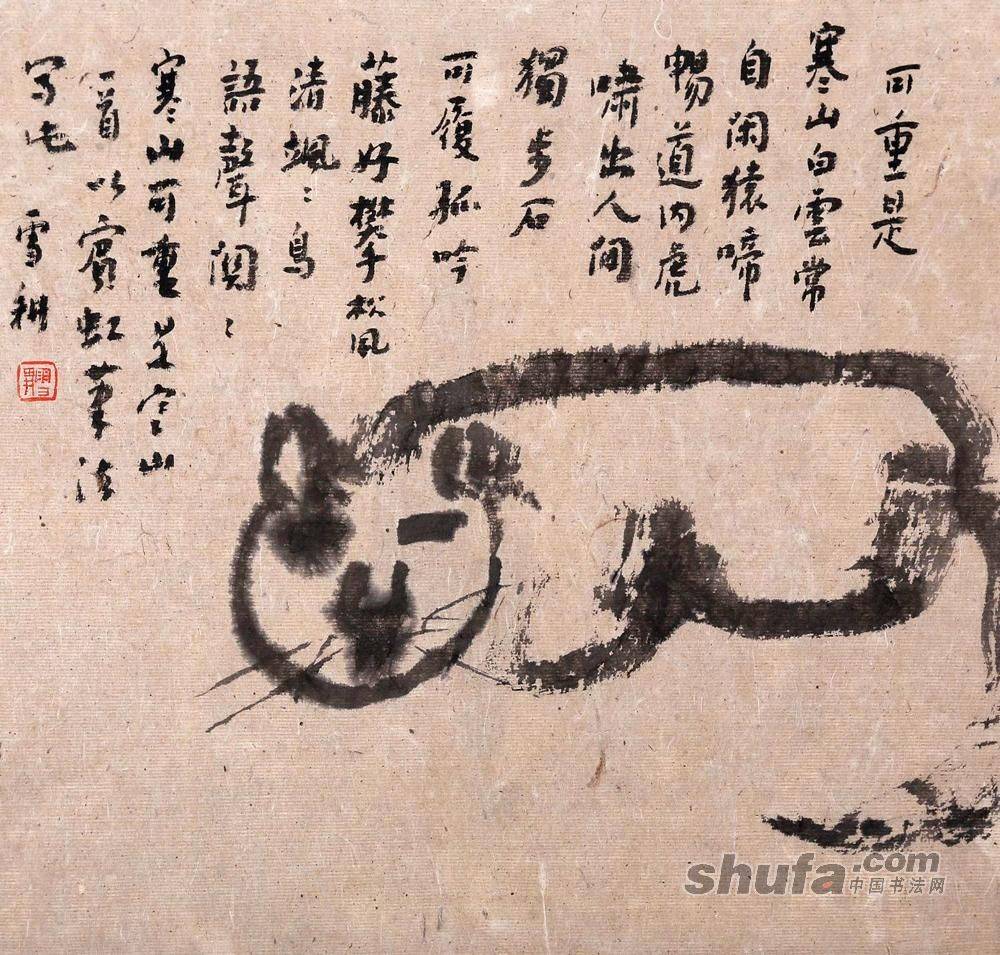 可重是
寒山白雲常
自閑猿啼
暢道内虎
嘯出人間
獨步石
可履孤吟
藤好攀松風
清颯〻鳥
語聲関〻
寒山可重是寒山
一首以賓虹筆法
写此
雪耕
shufa.com
中国书法网